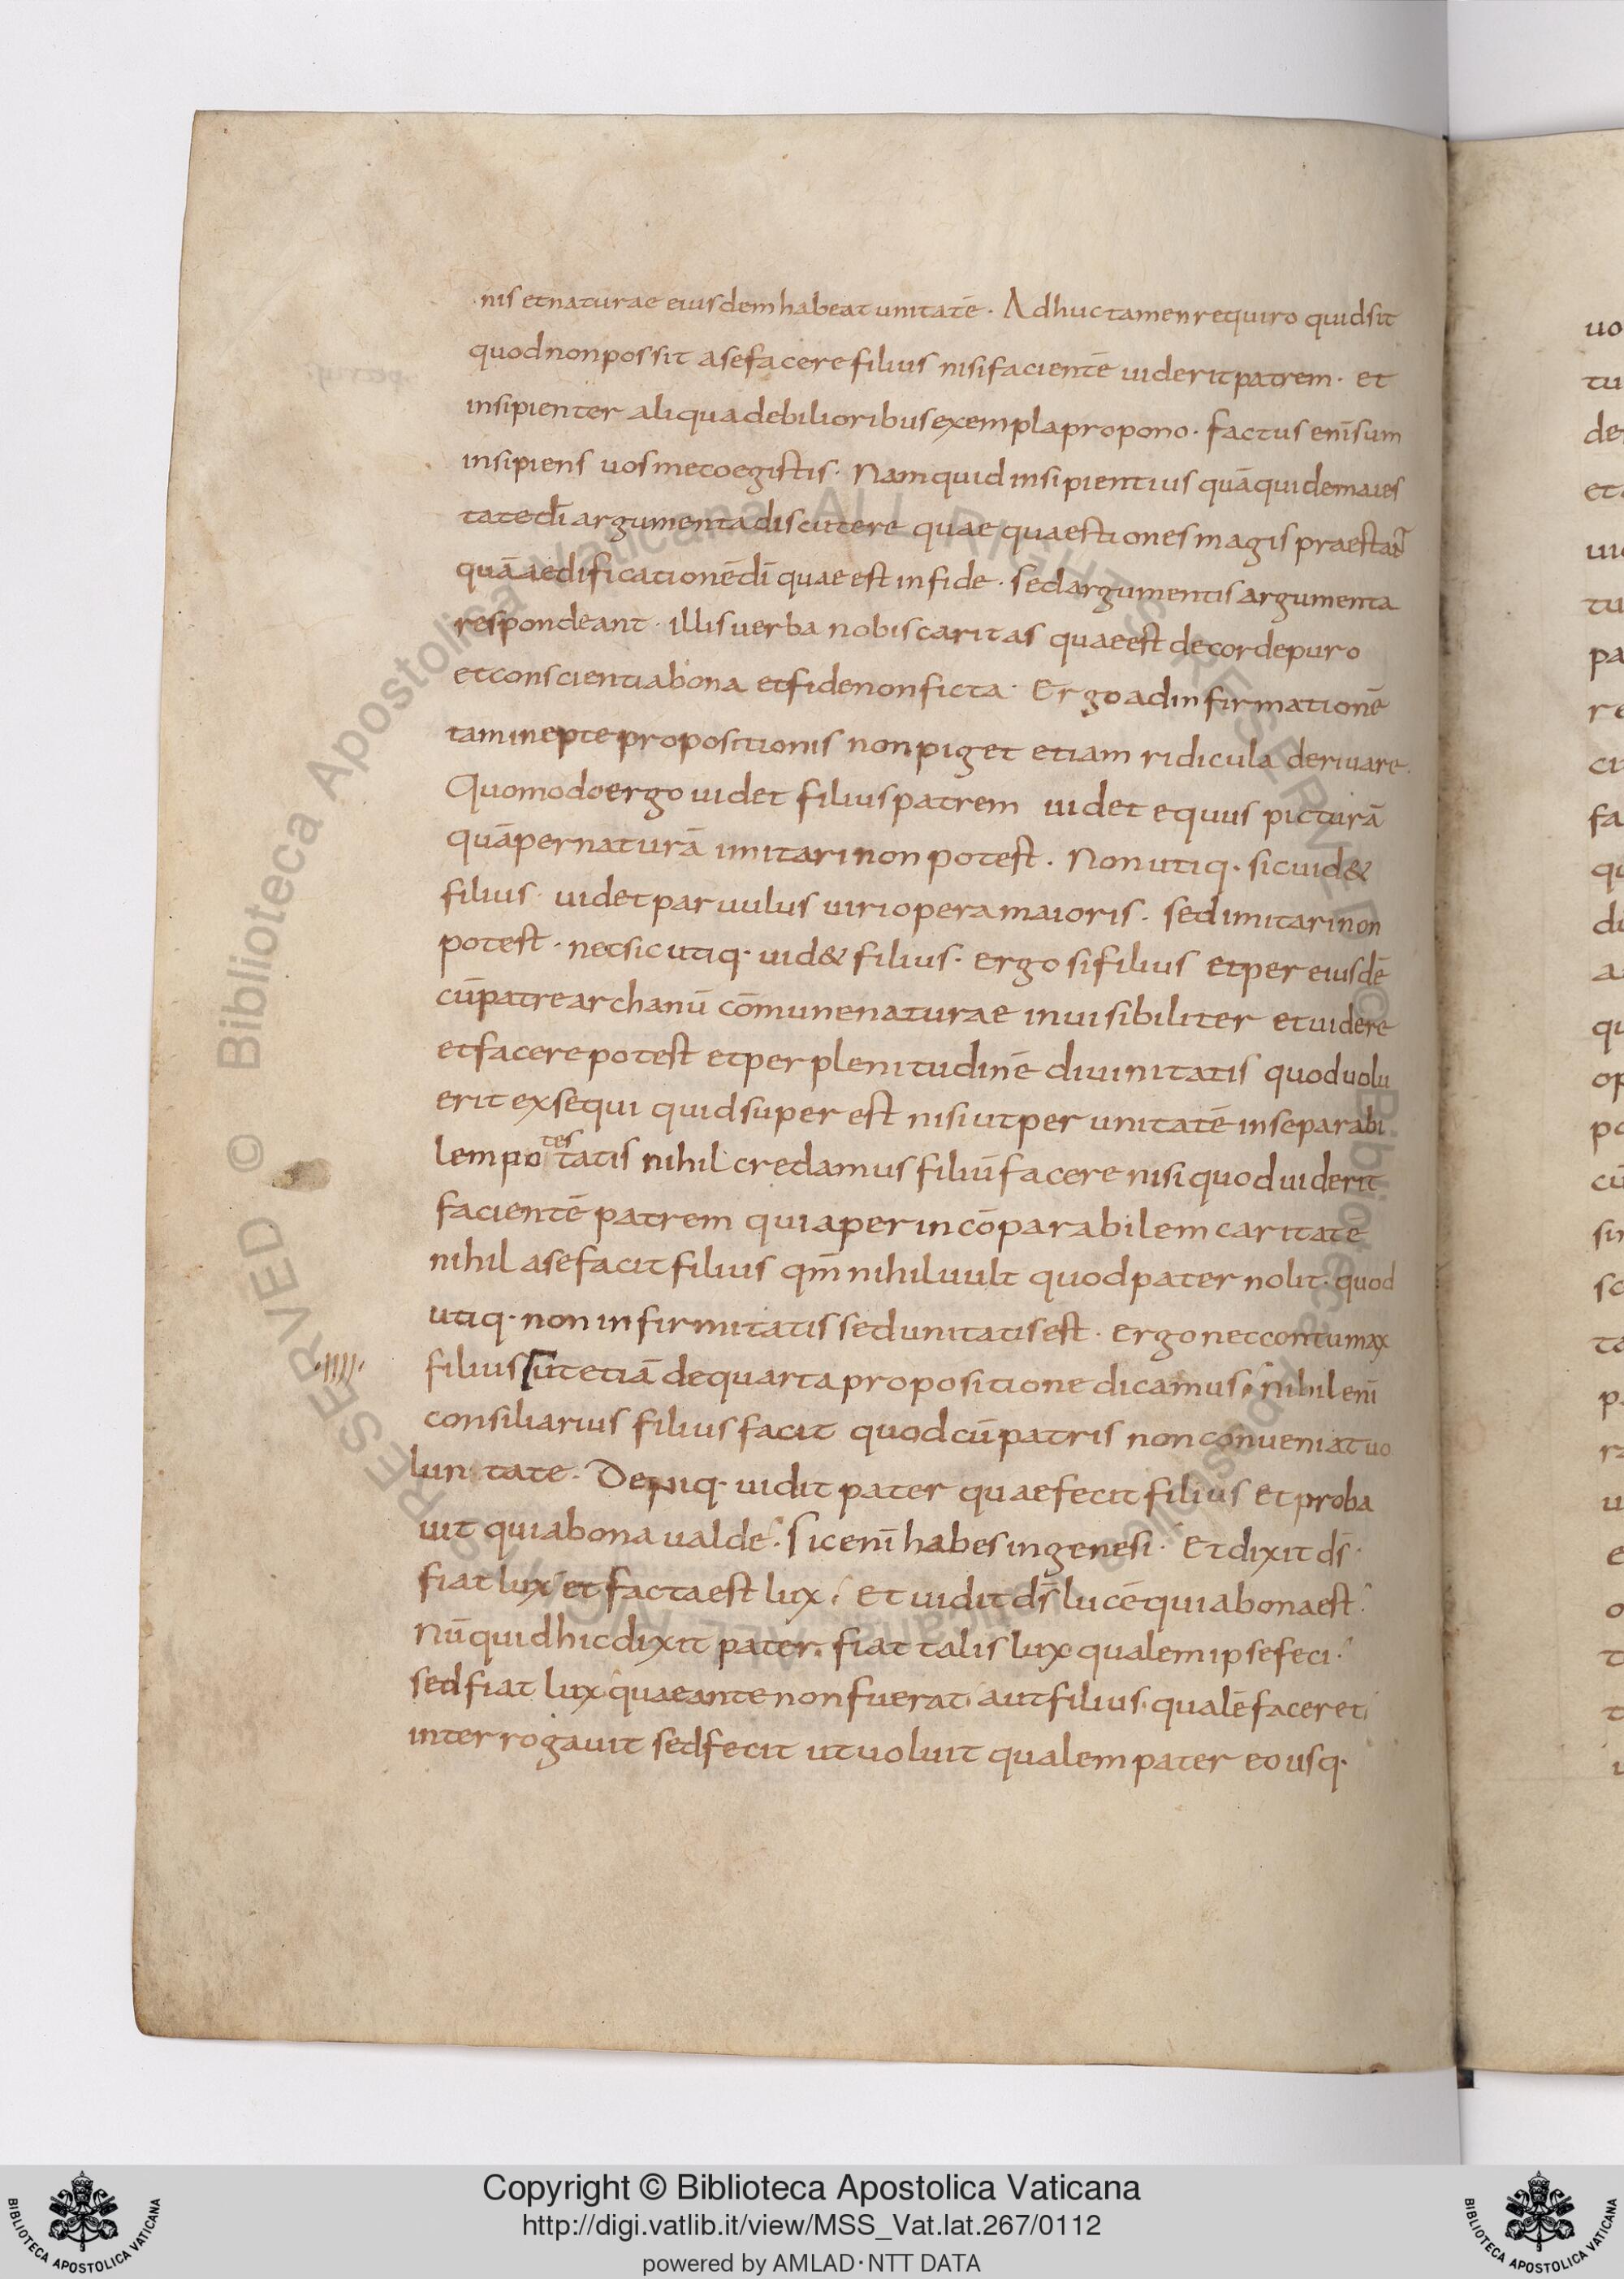 nis et naturae eiusdem habeat unitatē · Adhuc tamen requiro quid sit
quod non possit a se facere filius nisi facientē uiderit patrem · et
insipienter aliqua debilioribus exempla propono · factus enī sum
insipiens uos me coegistis · Nam quid insipientius quā qui de maies
tate dī argumenta discutere quae quaestiones magis praestant
quā aedificationē dī quae est in fide · sed argumentis argumenta
respondeant · illis uerba nobis caritas quae est de corde puro
et conscientia bona et fide non ficta · Ergo ad infirmationē
tam inepte propositionis non piget etiam ridicula deriuare ·
Quomodo ergo uidet filius patrem uidet equus picturā
quā per naturā imitari non potest · Non utiq · sic uid&
filius · uidet paruulus uiri opera maioris · sed imitari non
potest · nec sic utiq · uid& filius · ergo si filius et per eiusdē
cū patre archanū cōmune naturae inuisibiliter et uidere
et facere potest et per plenitudinē diuinitatis quod uolu
erit exsequi quid super est nisi ut per unitatē inseparabi
lem potestatis nihil credamus filiū facere nisi quod uiderit
facientē patrem quia per incōparabilem caritate
nihil a se facit filius qm̄ nihil uult quod pater nolit · quod
utiq · non infirmitatis sed unitatis est · ergo nec contumax
filius ut etiā de quarta propositione dicamus · nihil enī
consiliarius filius facit quod cū patris non conueniat uo
luntate · Deniq · uidit pater quae fecit filius et proba
uit quia bona ualde · Sic enī habes in genesi · Et dixit d̄s ·
fiat lux et facta est lux · et uidit d̄s lucē quia bona est ·
Nūquid hic dixit pater · fiat talis lux qualem ipse feci ·
sed fiat lux quae ante non fuerat · aut filius · qualē faceret ·
interrogauit sed fecit ut uoluit qualem pater eo usq ·
Copyright © Biblioteca Apostolica Vaticana
http://digi.vatlib.it/view/MSS_Vat.lat.267/0112
powered by AMLAD · NTT DATA